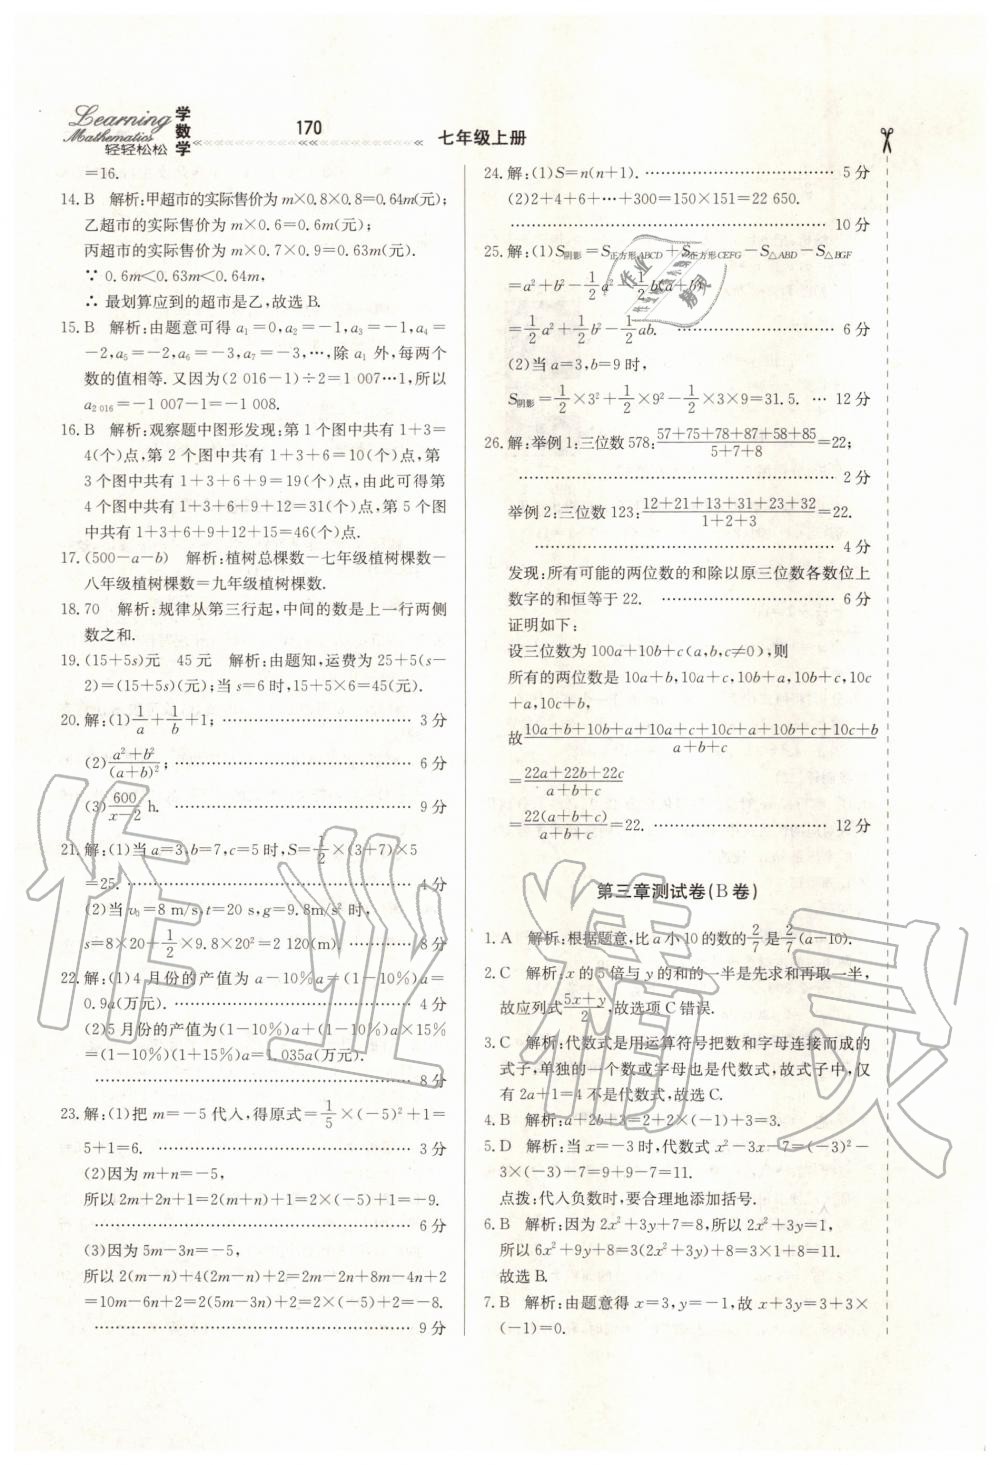 Learning
Mathematics
轻轻松松
学数学
170
七年级上册
=16.
14. B 解析:甲超市的实际售价为 m×0.8×0.8=0.64m(元);
乙超市的实际售价为 m×0.6=0.6m(元);
丙超市的实际售价为 m×0.7×0.9=0.63m(元).
∵ 0.6m<0.63m<0.64m,
∴ 最划算应到的超市是乙,故选 B.
15. B 解析:由题意可得 a₁=0,a₂=-1,a₃=-1,a₄=
-2,a₅=-2,a₆=-3,a₇=-3,…,除 a₁ 外,每两个
数的值相等.又因为(2 016-1)÷2=1 007…1,所以
a₂ ₀₁₆=-1 007-1=-1 008.
16. B 解析:观察题中图形发现:第 1 个图中共有 1+3=
4(个)点,第 2 个图中共有 1+3+6=10(个)点,第
3 个图中共有 1+3+6+9=19(个)点,由此可得第
4 个图中共有 1+3+6+9+12=31(个)点,第 5 个图
中共有 1+3+6+9+12+15=46(个)点.
17. (500-a-b) 解析:植树总棵数-七年级植树棵数-
八年级植树棵数=九年级植树棵数.
18. 70 解析:规律从第三行起,中间的数是上一行两侧
数之和.
19. (15+5s)元 45 元 解析:由题知,运费为 25+5(s-
2)=(15+5s)(元);当 s=6 时,15+5×6=45(元).
20. 解:(1)1/a+1/b+1; …… 3 分
(2)(a²+b²)/(a+b)²; …… 6 分
(3)600/(x-2) h. …… 9 分
21. 解:(1)当 a=3,b=7,c=5 时,S=1/2×(3+7)×5
=25. …… 4 分
(2)当 v₀=8 m/s,t=20 s,g=9.8m/s² 时,
s=8×20+1/2×9.8×20²=2 120(m). …… 8 分
22. 解:(1)4 月份的产值为 a-10%a=(1-10%)a=
0.9a(万元). …… 4 分
(2)5 月份的产值为(1-10%)a+(1-10%)a×15%
=(1-10%)(1+15%)a=1.035a(万元).
…… 8 分
23. 解:(1)把 m=-5 代入,得原式=1/5×(-5)²+1=
5+1=6. …… 3 分
(2)因为 m+n=-5,
所以 2m+2n+1=2(m+n)+1=2×(-5)+1=-9.
…… 6 分
(3)因为 5m-3n=-5,
所以 2(m-n)+4(2m-n)+2=2m-2n+8m-4n+2
=10m-6n+2=2(5m-3n)+2=2×(-5)+2=-8.
…… 9 分
24. 解:(1)S=n(n+1). …… 5 分
(2)2+4+6+…+300=150×151=22 650.
…… 10 分
25. 解:(1)S阴影=S正方形ABCD+S正方形CEFG-S△ABD-S△BGF
=a²+b²-1/2a²-1/2b(a+b)
=1/2a²+1/2b²-1/2ab. …… 6 分
(2)当 a=3,b=9 时,
S阴影=1/2×3²+1/2×9²-1/2×3×9=31.5. … 12 分
26. 解:举例 1:三位数 578:(57+75+78+87+58+85)/(5+7+8)=22;
…… 2 分
举例 2:三位数 123:(12+21+13+31+23+32)/(1+2+3)=22.
…… 4 分
发现:所有可能的两位数的和除以原三位数各数位上
数字的和恒等于 22. …… 6 分
证明如下:
设三位数为 100a+10b+c(a,b,c≠0),则
所有的两位数是 10a+b,10a+c,10b+a,10b+c,10c
+a,10c+b,
故(10a+b+10b+a+10a+c+10c+a+10b+c+10c+b)/(a+b+c)
=(22a+22b+22c)/(a+b+c)
=22(a+b+c)/(a+b+c)=22. …… 12 分
第三章测试卷(B 卷)
1. A 解析:根据题意,比 a 小 10 的数的2/7是2/7(a-10).
2. C 解析:x 的 5 倍与 y 的和的一半是先求和再取一半,
故应列式(5x+y)/2,故选项 C 错误.
3. C 解析:代数式是用运算符号把数和字母连接而成的
式子,单独的一个数或字母也是代数式,故式子中,仅
有 2a+1=4 不是代数式,故选 C.
4. B 解析:a+2b+3=2+2×(-1)+3=3.
5. D 解析:当 x=-3 时,代数式 x²-3x-7=(-3)²-
3×(-3)-7=9+9-7=11.
点拨:代入负数时,要合理地添加括号.
6. B 解析:因为 2x²+3y+7=8,所以 2x²+3y=1,
所以 6x²+9y+8=3(2x²+3y)+8=3×1+8=11.
故选 B.
7. B 解析:由题意得 x=3,y=-1,故 x+3y=3+3×
(-1)=0.
作业精灵
作业精灵